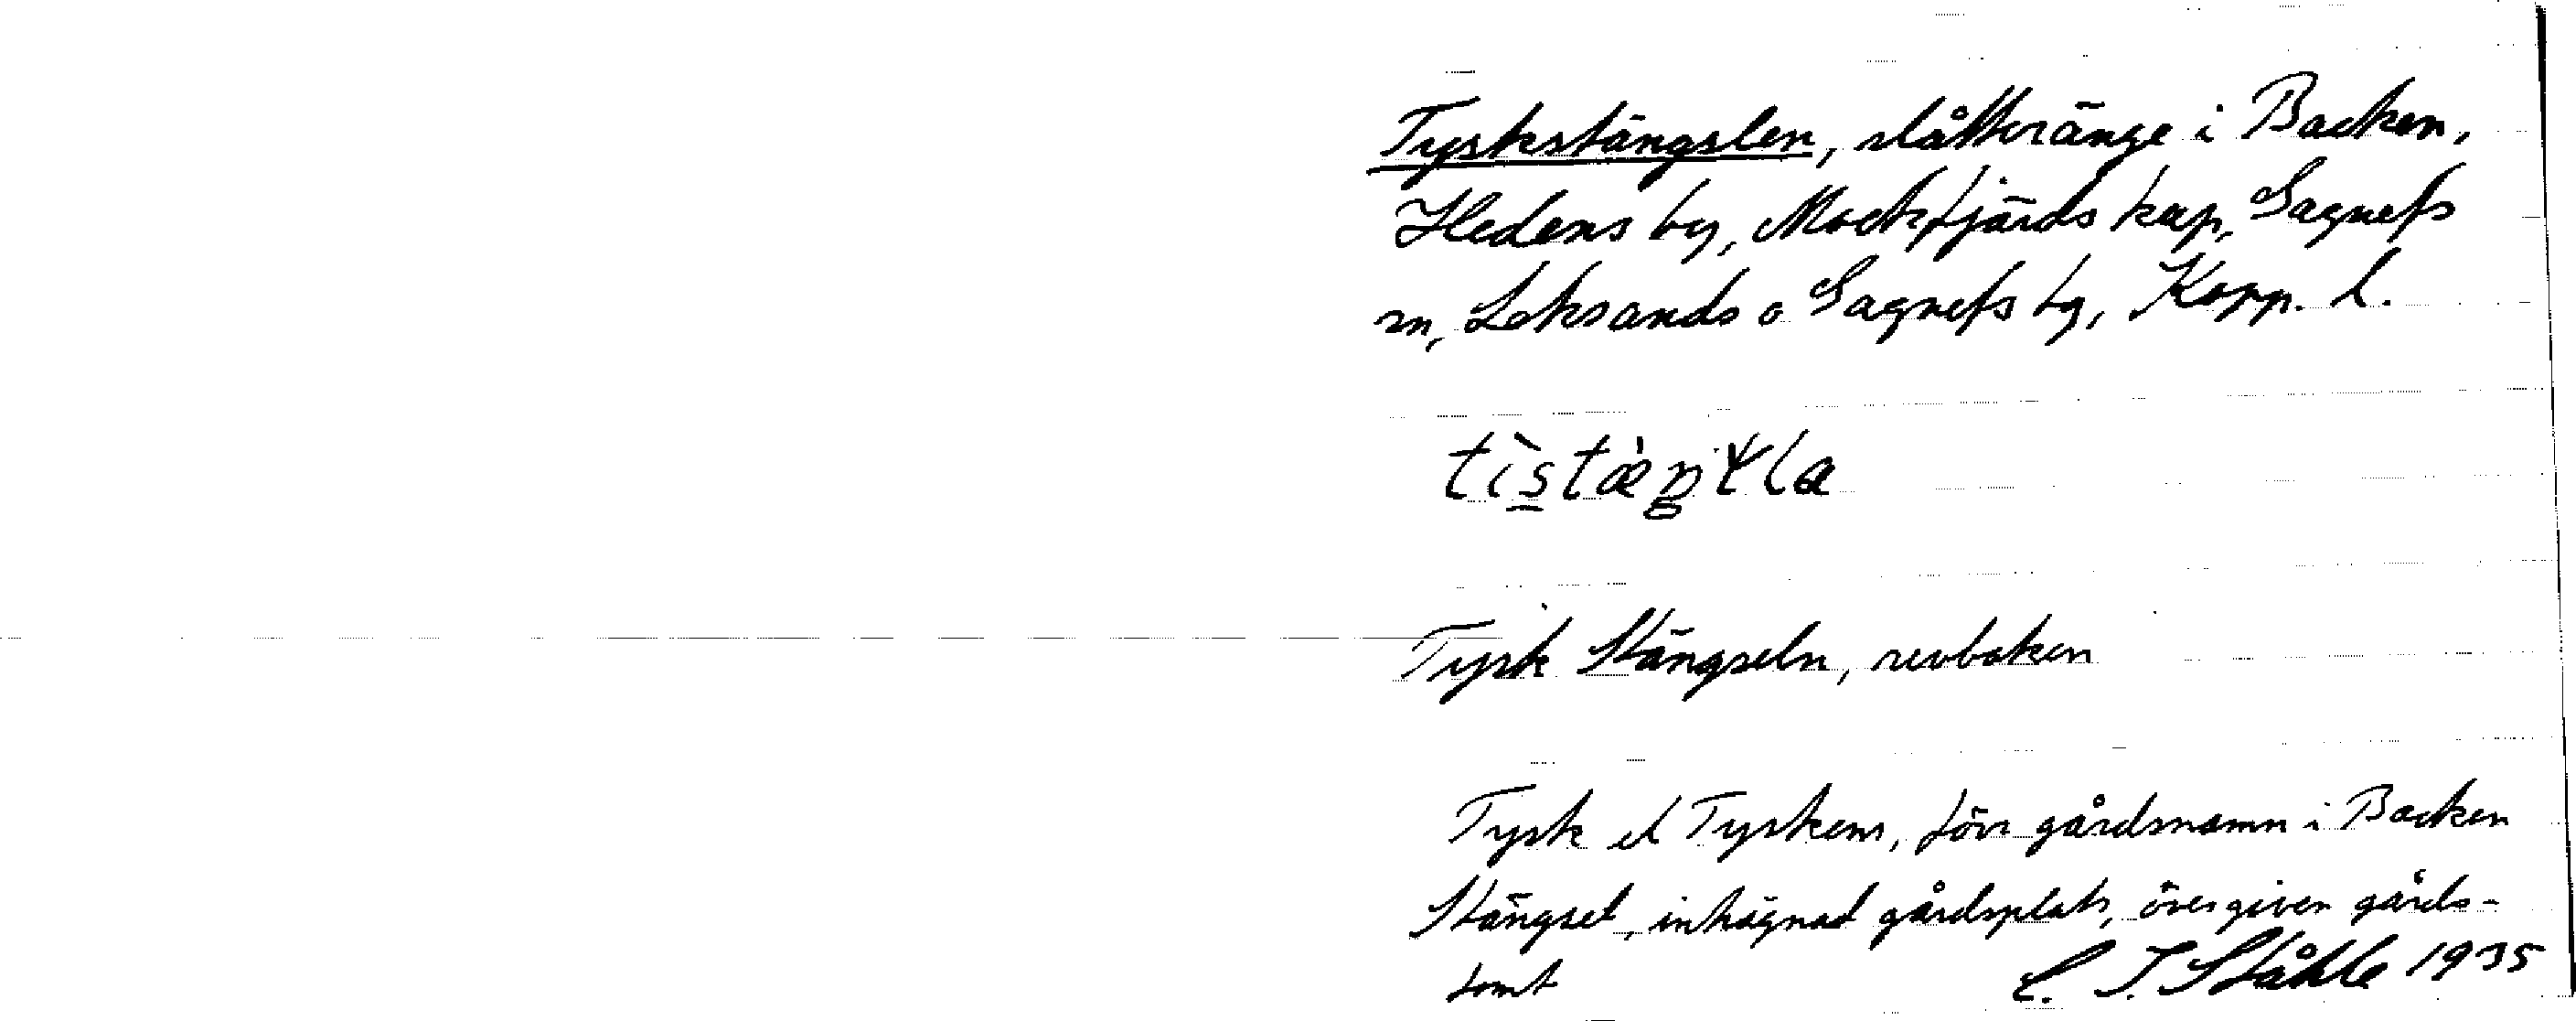 Tyskstängslen, slåtteränge i Backen,
Hedens by, Mockfjärds kap, Gagnefs
sn, Leksands o Gagnefs tg, Kopp. l.
Tysk Stängseln, revboken
Tysk el Tyskens, förr gårdsnamn i Backen
Stängsel, inhägnad gårdsplats, övergiven gårds-
tomt C. I. Ståhle 1935